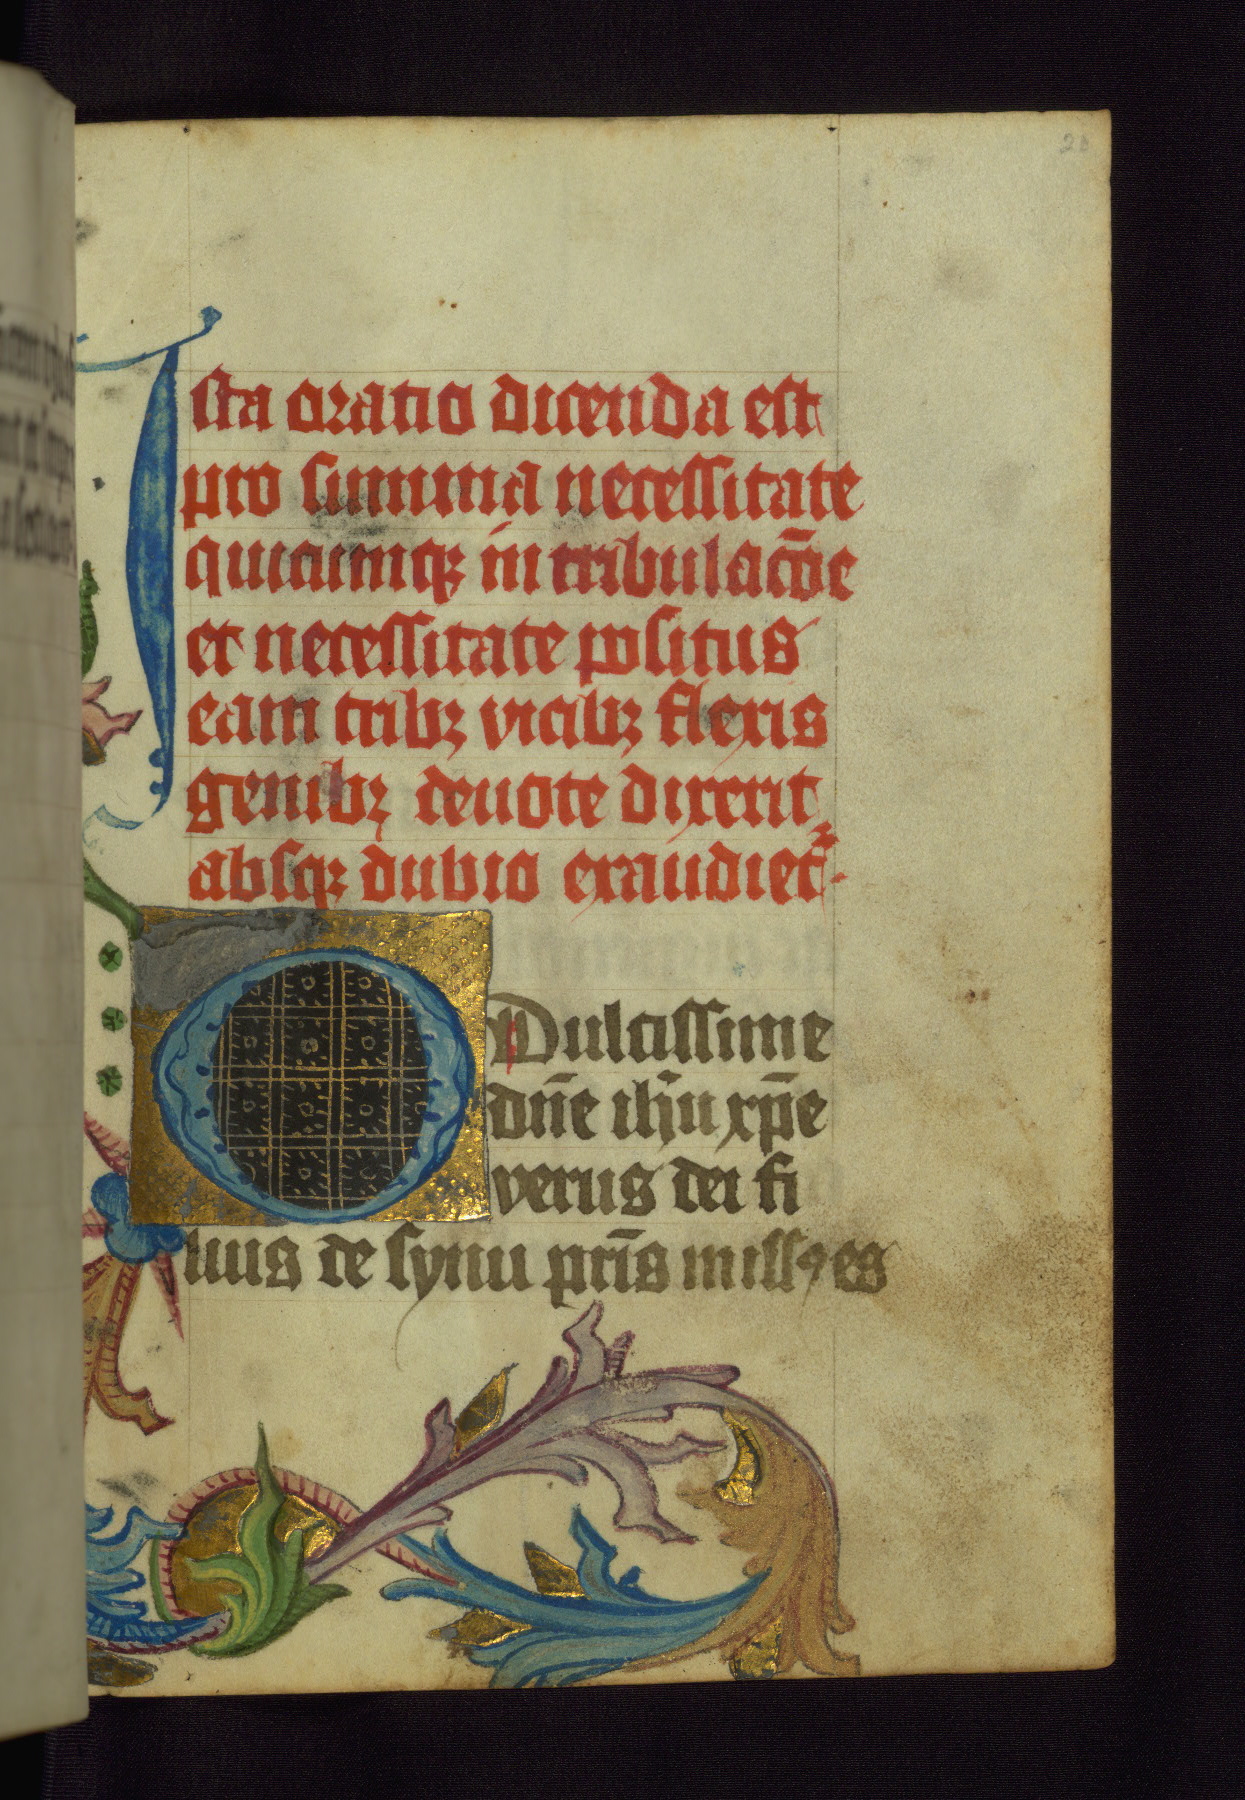 Ista oratio dicenda est
pro summa necessitate
quicumqꝫ in tribulac̄oe
et necessitate positus
eam tribꝫ vicibꝫ flexis
genibꝫ deuote dixerit
absqꝫ dubio exaudiet᷑.
O Dulcissime
dn̄e ihū xp̄e
verus dei fi
lius de synu pr̄is missꝯ es